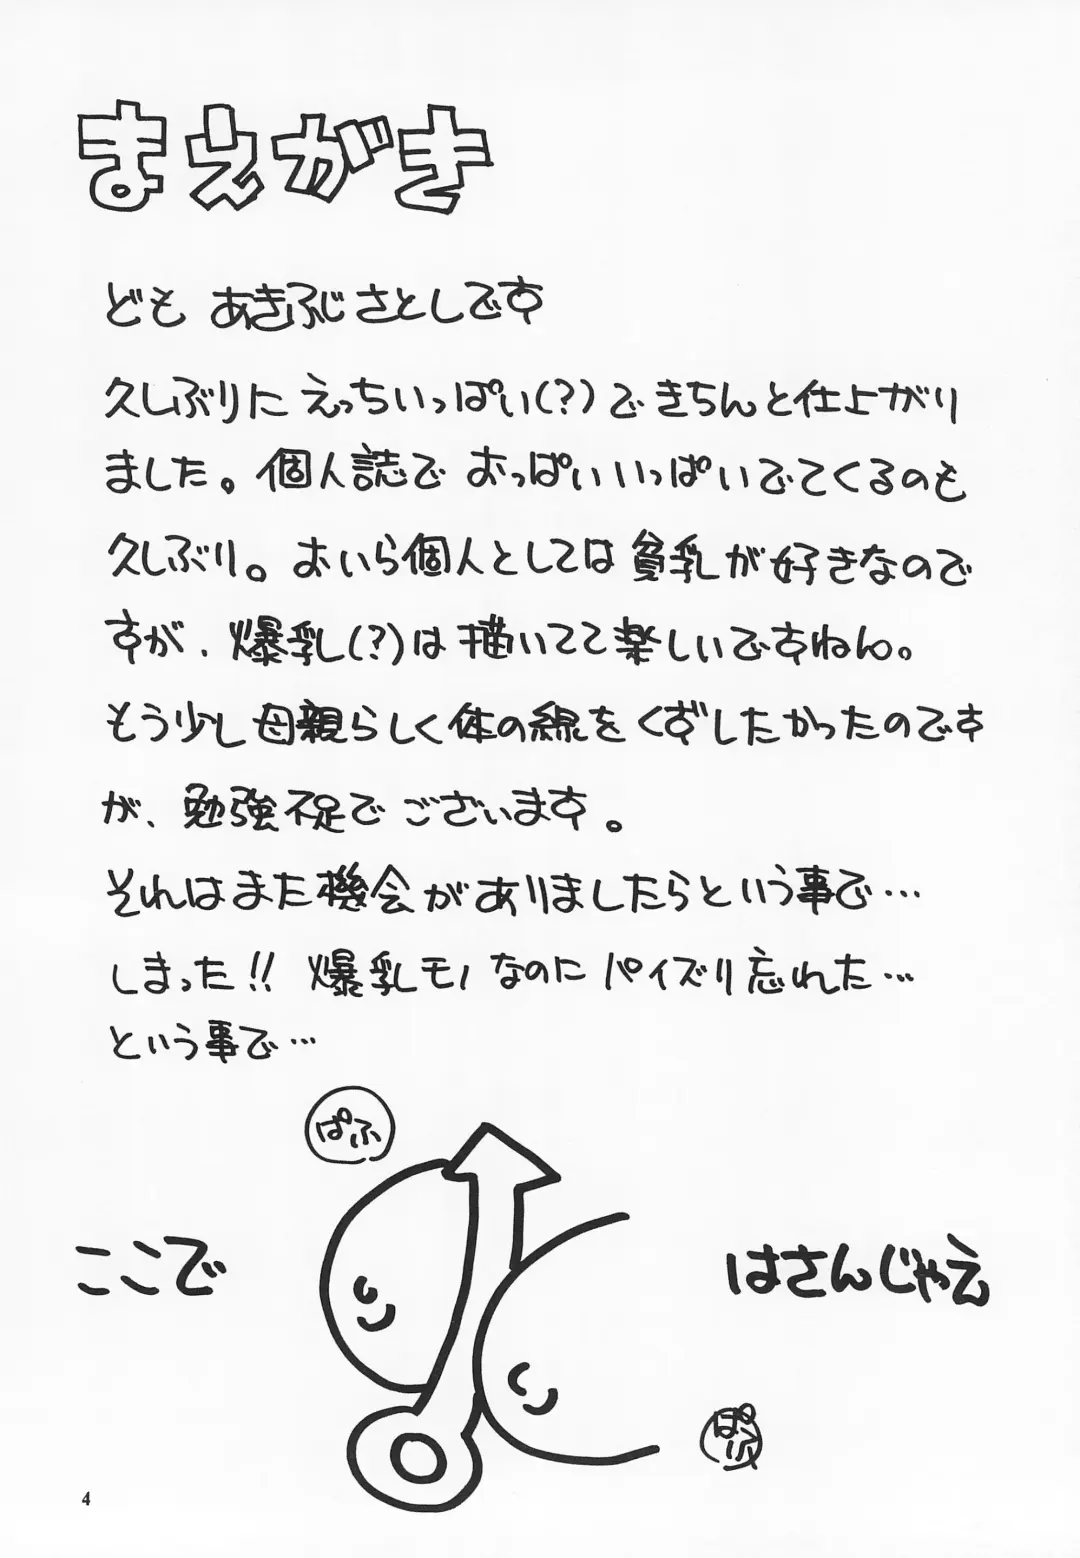 まえがき
ども あきふじさとしです
久しぶりに えっちいっぱい(?)で きちんと仕上がり
ました。個人誌で おっぱいいっぱいでてくるのも
久しぶり。おいら個人としては 貧乳が好きなので
すが、爆乳(?)は描いてて楽しいですねん。
もう少し母親らしく体の線をくずしたかったのです
が、勉強不足でございます。
それはまた機会がありましたらという事で…
しまった!! 爆乳モノなのにパイズリ忘れた…
という事で…
ぱふ
ここで
はさんじゃえ
ぱふ
4